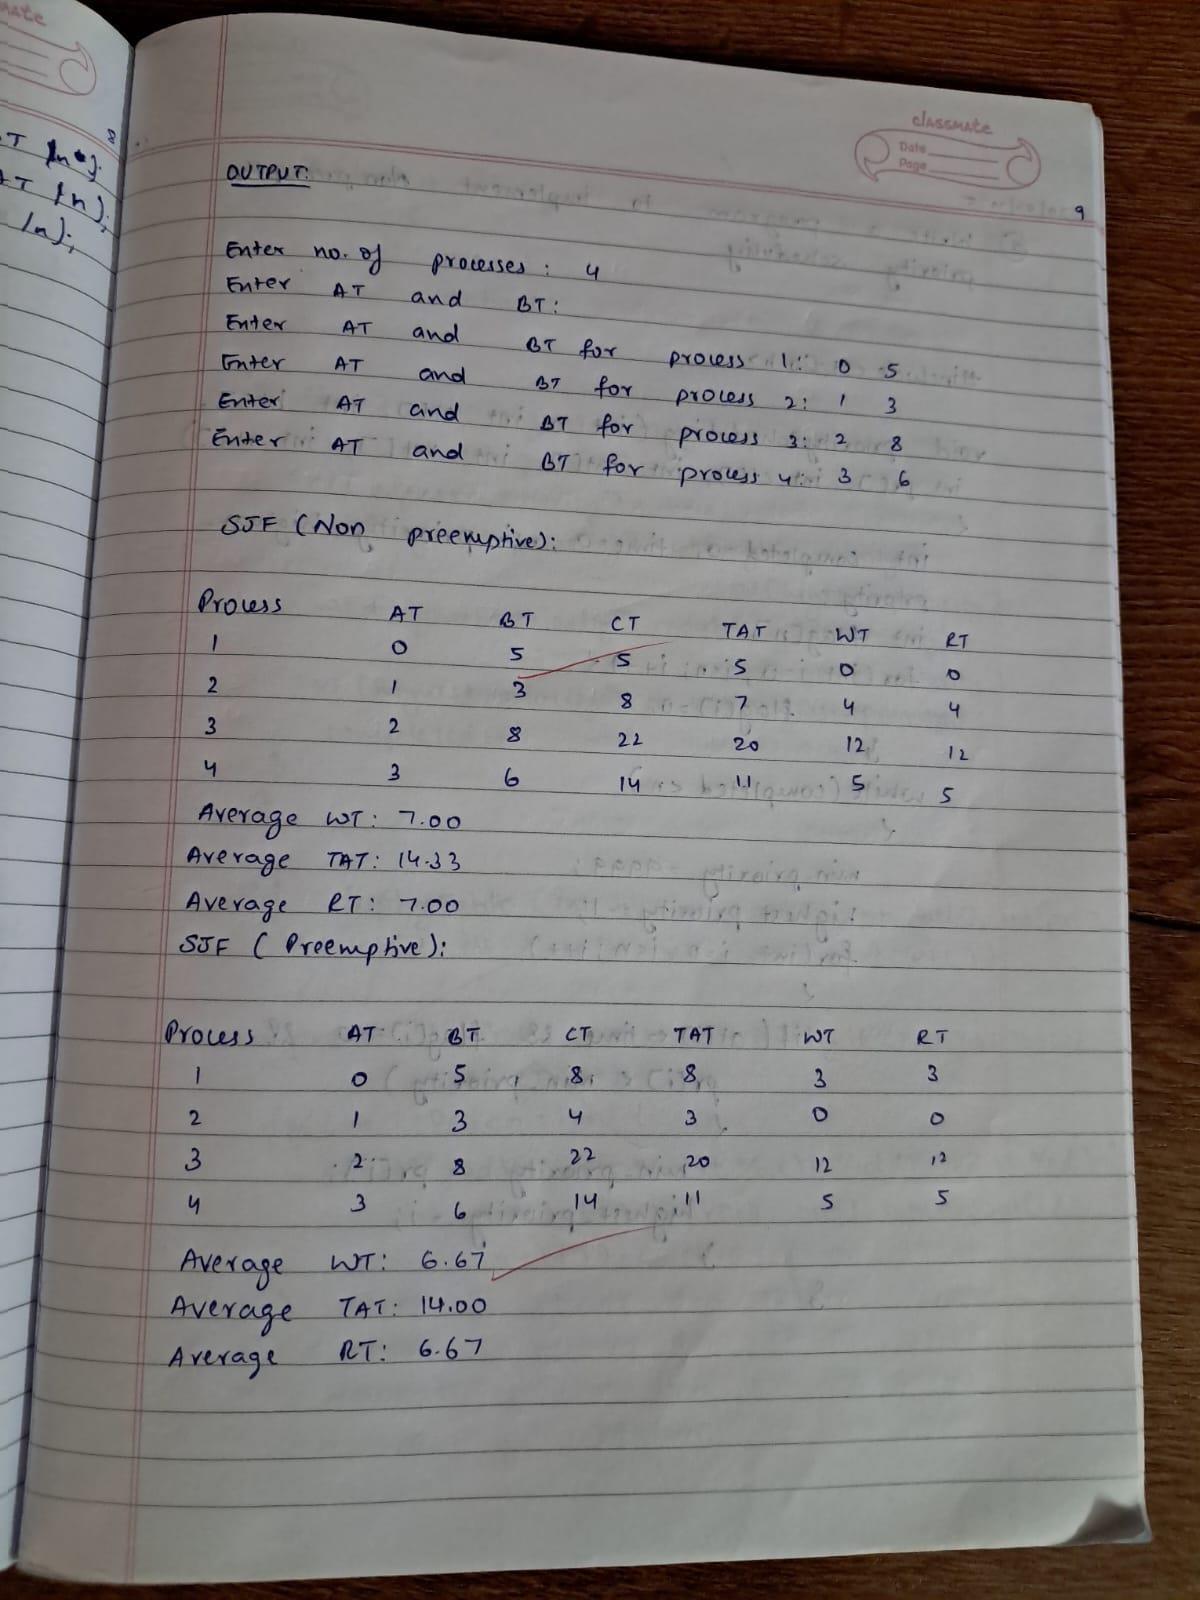 classmate
Date
Page
9
OUTPUT:
Enter no. of processes : 4
Enter AT and BT:
Enter AT and BT for process 1: 0 5
Enter AT and BT for process 2: 1 3
Enter AT and BT for process 3: 2 8
Enter AT and BT for process 4: 3 6
SJF (Non preemptive):
Process AT BT CT TAT WT RT
1 0 5 5 5 0 0
2 1 3 8 7 4 4
3 2 8 22 20 12 12
4 3 6 14 11 5 5
Average WT: 7.00
Average TAT: 14.33
Average RT: 7.00
SJF ( Preemptive):
Process AT BT CT TAT WT RT
1 0 5 8 8 3 3
2 1 3 4 3 0 0
3 2 8 22 20 12 12
4 3 6 14 11 5 5
Average WT: 6.67
Average TAT: 14.00
Average RT: 6.67